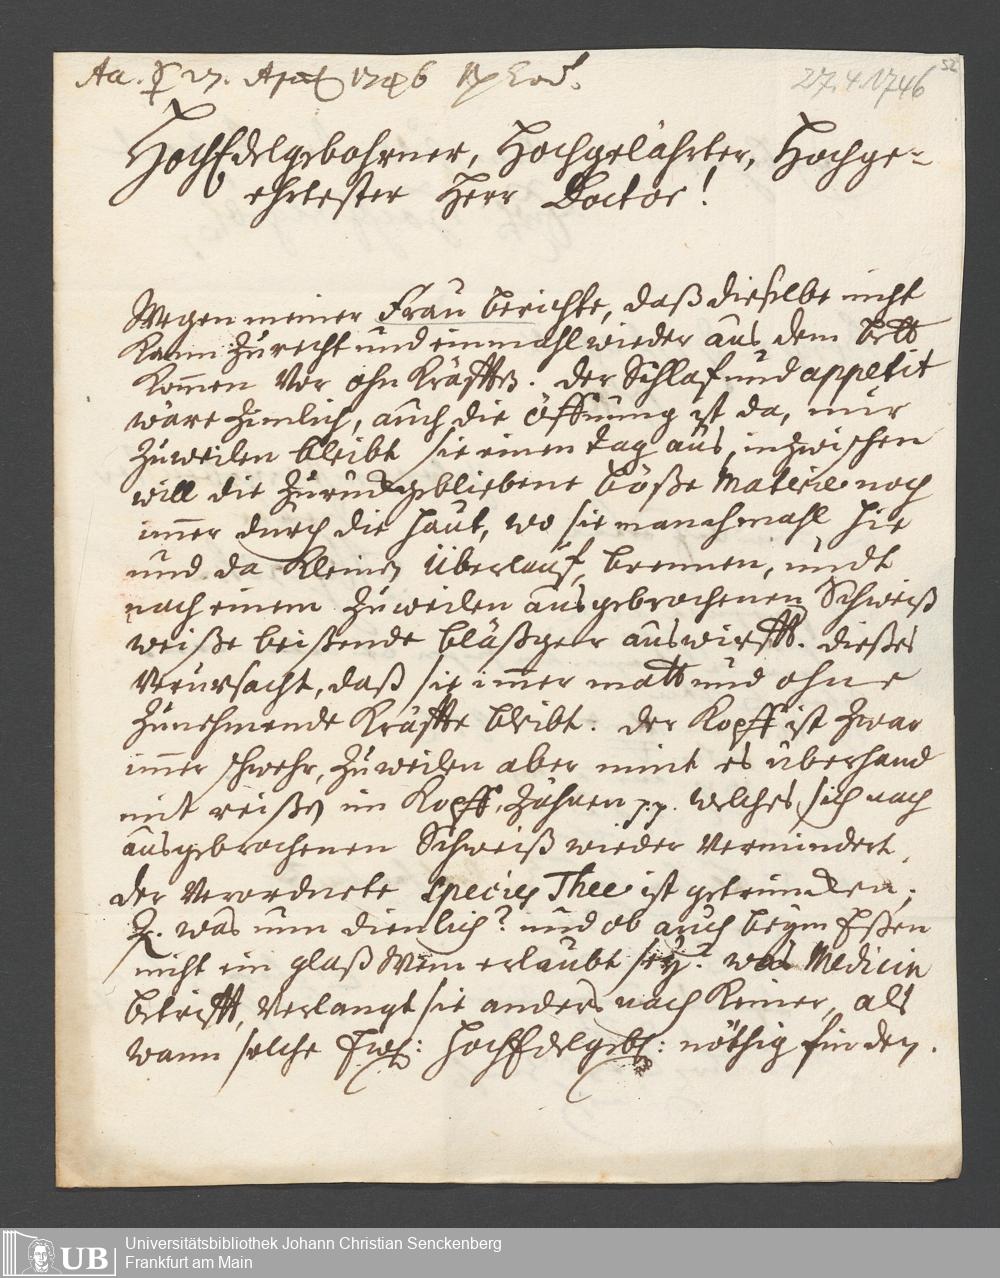 Aa. ☿ 27. April 1746 Rp Eod.
27.4.1746
52
HochEdelgebohrner, Hochgelährter, Hochge-
ehrtester Herr Doctor!
Wegen meiner Frau berichte, daß dieselbe nicht
kann zurecht und einmahl wieder aus dem bett
kom̄en vor ohn Kräfften. der Schlaf und appetit
wäre zimlich, auch die öffnung ist da, nur
zuweilen bleibt sie einen tag aus, inzwischen
will die zurückgebliebene böße Materie noch
im̄er durch die haut, wo sie manchmahl hie
und da kleine überlauf, brennen, undt
nach einem zuweilen ausgebrochenen Schweiß
weiße beißende bläßger auswirfft. dießes
verursacht, daß sie im̄er matt und ohne
zunehmende Kräffte bleibt. der Kopff ist zwar
im̄er schwehr, zuweilen aber nimt es überhand
mit reißen im Kopff, Zähnen p.p. welches sich nach
ausgebrochenen Schweiß wieder vermindert.
der verordnete Species Thee ist getruncken;
was nun dienlich? und ob auch beym Eßen
nicht ein glaß Wein erlaubt sey? was Medicin
betrifft, verlangt sie anders nach keiner, als
wann solche Ew: HochEdelgeb: nöthig finden.
UB
Universitätsbibliothek Johann Christian Senckenberg
Frankfurt am Main